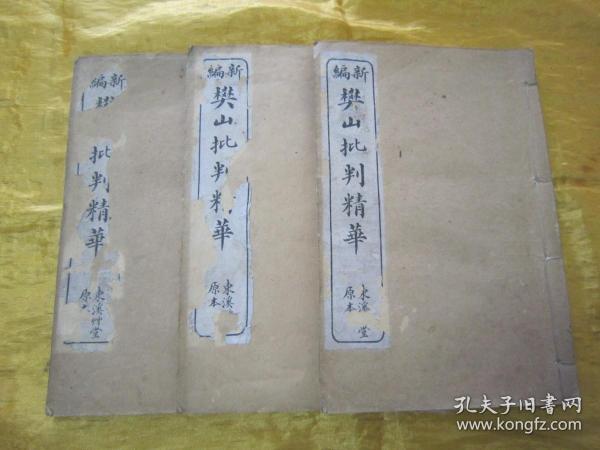 新編
樊山批判精華
東溪 堂
原本
新編
樊山批判 華
東溪
原本
新編
批判精華
東溪艸堂
原
孔夫子旧书网
www.kongfz.com